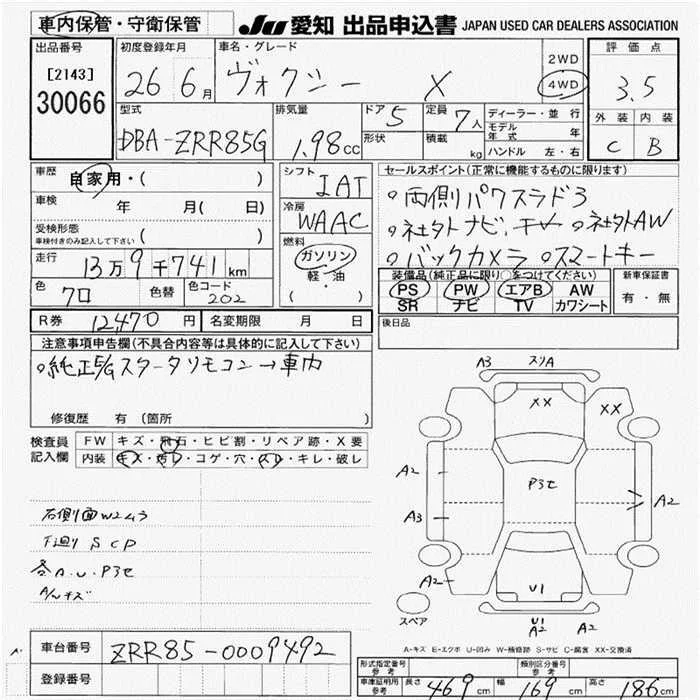 車内保管・守衛保管 JU 愛知 出品申込書 JAPAN USED CAR DEALERS ASSOCIATION
出品番号
[2143]
30066
初度登録年月
26 6月
車名・グレード
ヴォクシー X
2WD
4WD
評価点
3.5
外装 内装
C B
型式
DBA-ZRR85G
排気量
1.98cc
ドア 5
形状
定員 7人
積載 kg
ディーラー・並行
モデル年式 年
ハンドル 左・右
車歴 自家用・( )
車検 年 月( 日)
受検形態
車検付きのみ記入して下さい ( )
走行 13万9千741km
色 クロ 色替 色コード 202
シフト IAT
冷房 WAAC
燃料
ガソリン
軽・油
( )
セールスポイント(正常に機能するものに限ります)
○両側パワスラドア
○社外ナビ, ○社外AW
○バックカメラ ○スマートキー
装備品(純正品に限り○をつけてください)
PS PW エアB AW
SR ナビ TV カワシート
新車保証書
有・無
R券 12,470円 名変期限 月 日
後日品
注意事項申告欄(不具合内容等は具体的に記入して下さい)
○純正E/Gスターターリモコン→車内
修復歴 有 (箇所
検査員記入欄
FW キズ・飛石・ヒビ割・リペア跡・X要
内装 キズ・汚レ・コゲ・穴・スレ・キレ・破レ
右側面W2ムラ
下廻りSCP
各A.U.P3セ
A/Wキズ
A3 スリA
XX XX
A2
P3セ
A2
A3
A2
U1
スペア
U1
A2 A2
A-キズ E-エクボ U-凹み W-補修跡 S-サビ C-腐食 XX-交換済
車台番号 ZRR85-0009492
登録番号
形式指定番号 参考 類別区分番号 参考
車庫証明用 参考 長さ 469cm 幅 169cm 高さ 186cm